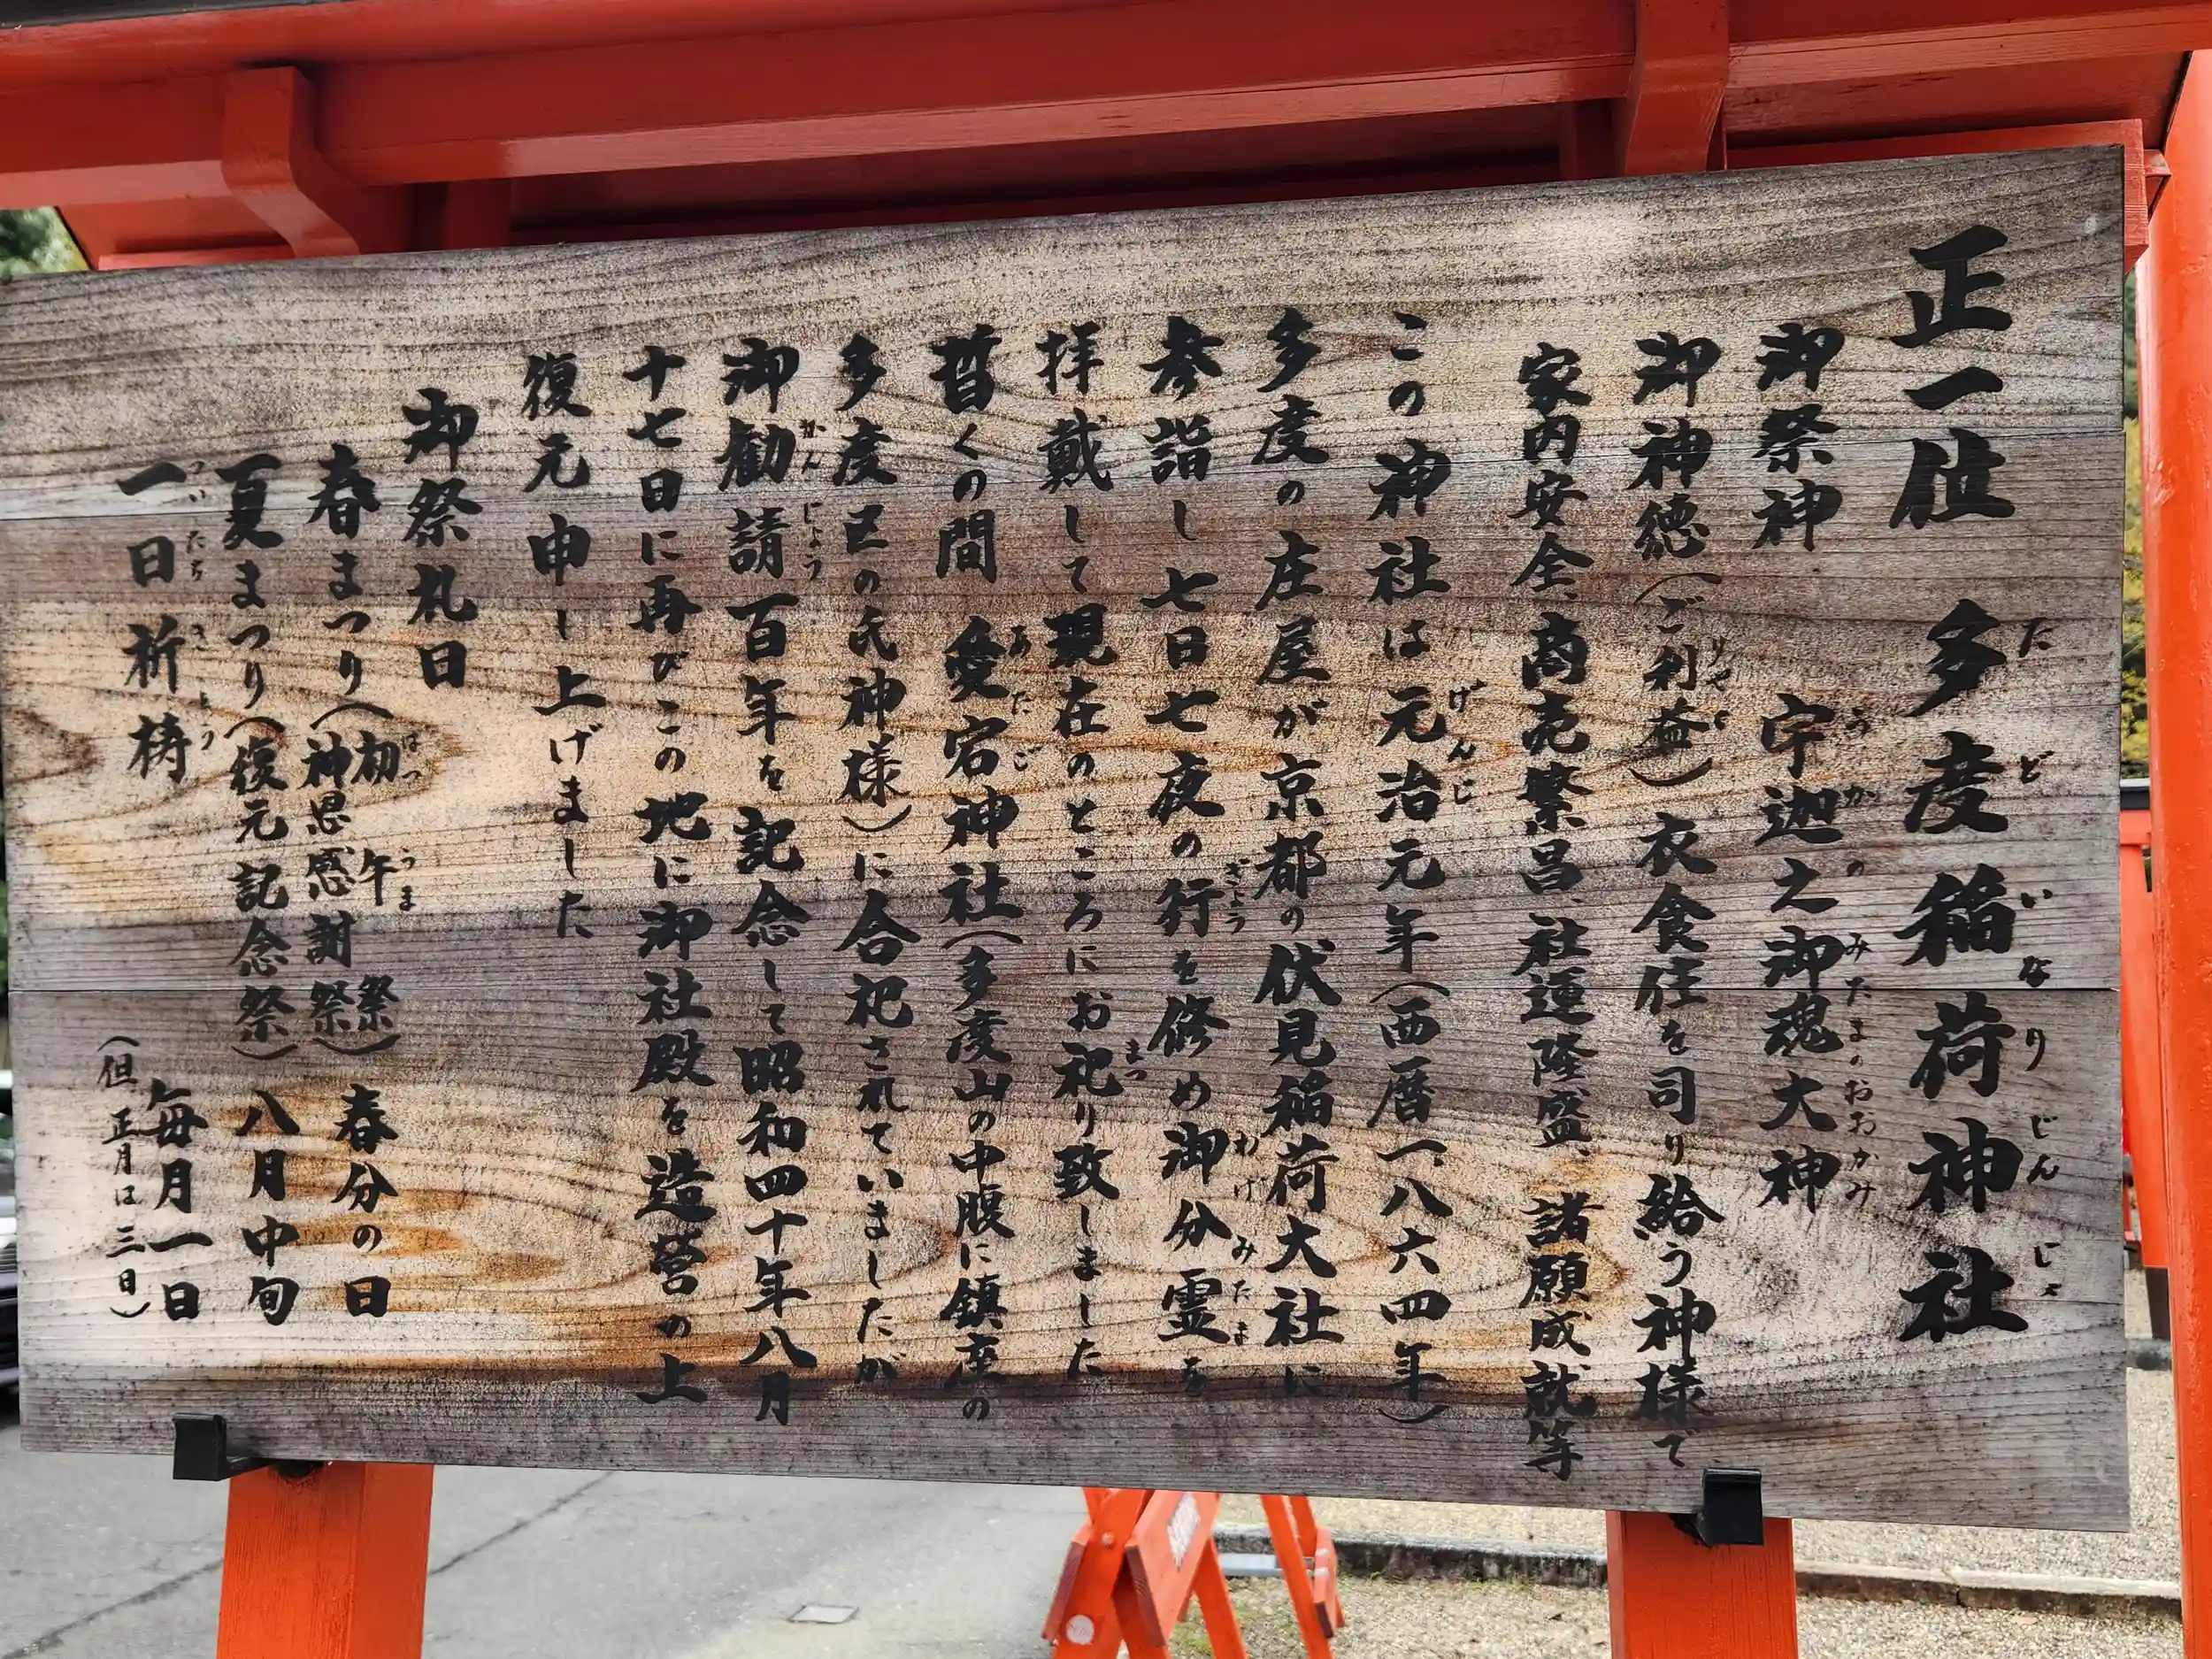 正一位 多度稲荷神社
御祭神 宇迦之御魂大神
御神徳(ご利益)衣食住を司り給う神様で
家内安全、商売繁昌、社運隆盛、諸願成就等
この神社は元治元年(西暦一八六四年)
多度の庄屋が京都の伏見稲荷大社に
参詣し七日七夜の行を修め御分霊を
拝戴して現在のところにお祀り致しました
暫くの間 愛宕神社(多度山の中腹に鎮座の
多度区の氏神様)に合祀されていましたが
御勧請百年を記念して昭和四十年八月
十七日に再びこの地に御社殿を造営の上
復元申し上げました
御祭礼日
春まつり(初午祭 神恩感謝祭) 春分の日
夏まつり(復元記念祭) 八月中旬
一日祈祷 毎月一日
(但 正月は三日)